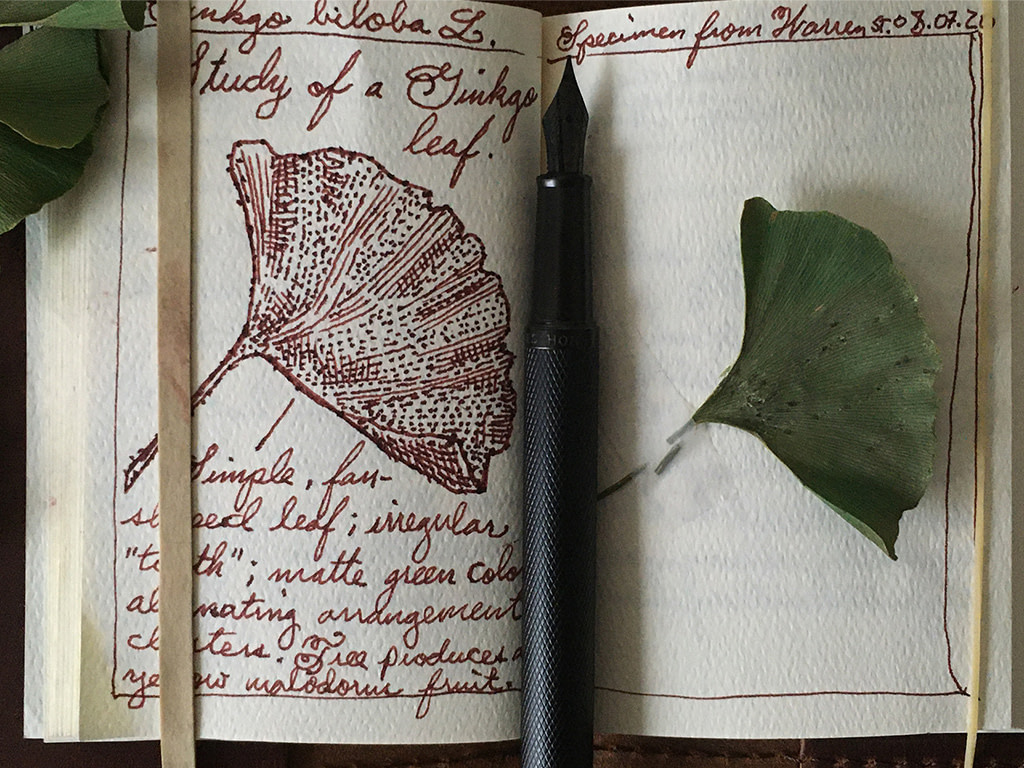 Ginkgo biloba L.
Study of a Ginkgo
leaf.
Simple, fan-
shaped leaf; irregular
"teeth"; matte green color
alternating arrangement
clusters. Tree produces
yellow malodorus fruit.
Specimen from Warren St. 08.07.20